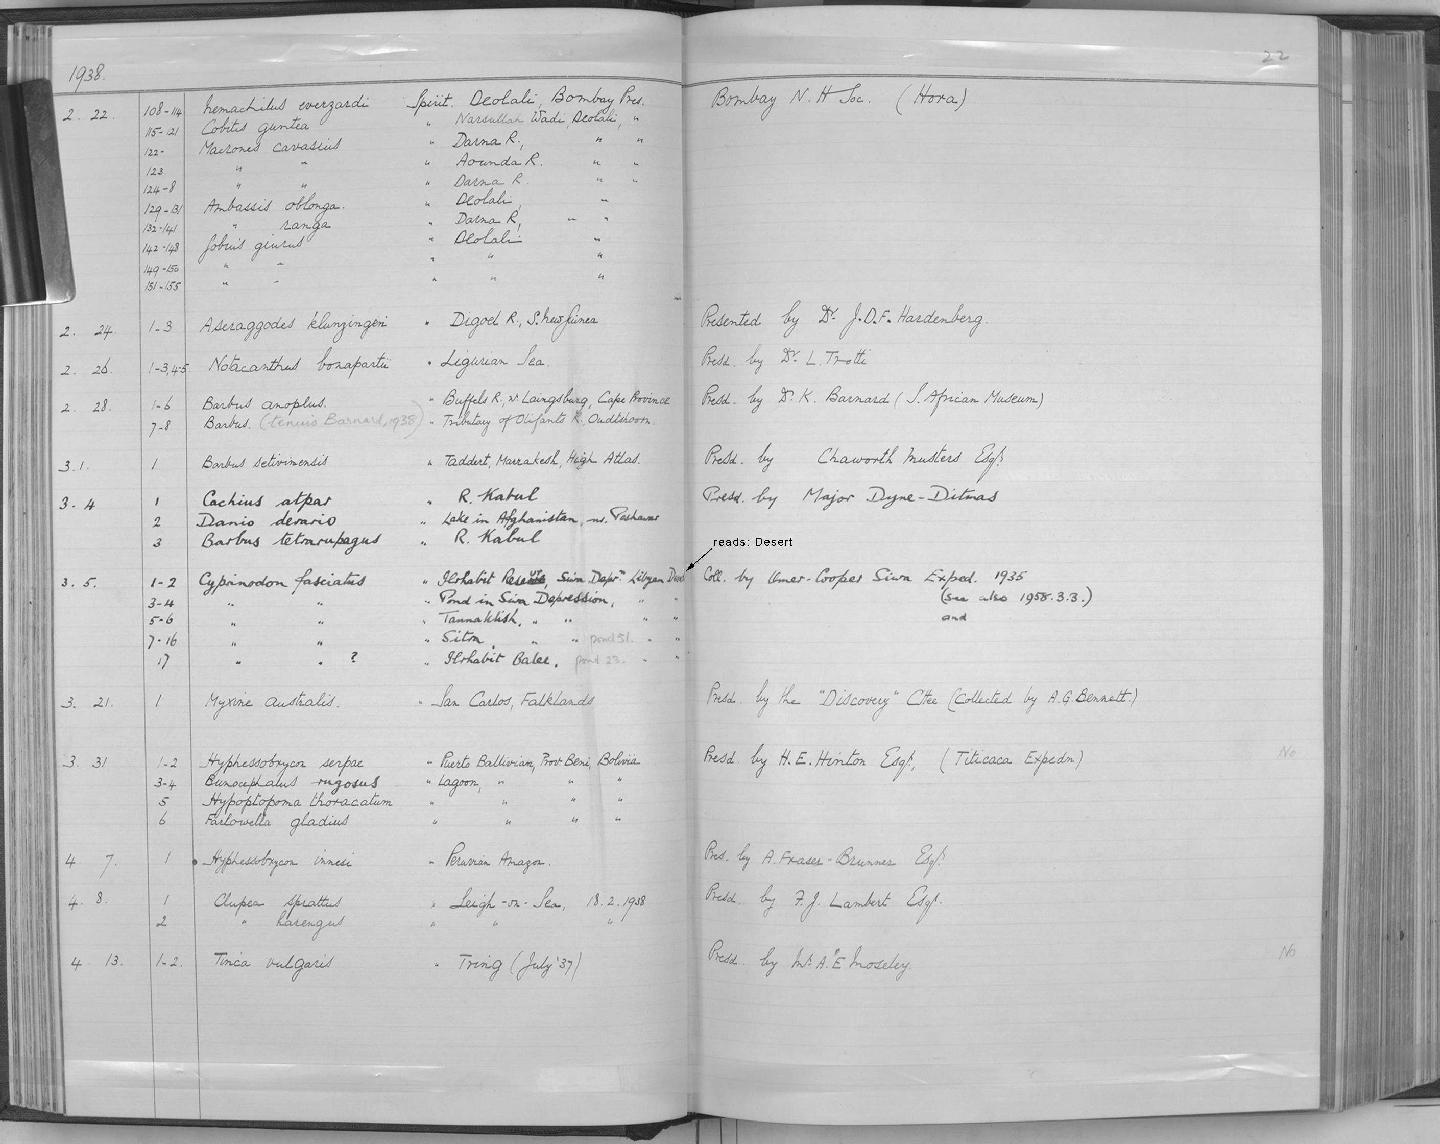 22
1938.
2. 22. 108-114 Nemachilus everzardi Spirit. Deolali, Bombay Pres. Bombay N. H Soc. (Hora)
115-121 Cobitis guntea " Narsullah Wadi, Deolali, "
122- Macrones cavasius " Darna R., " "
123 " " " Aounda R. " "
124-8 " " " Darna R. " "
129-131 Ambassis oblonga. " Deolali, "
132-141 " ranga " Darna R, " "
142-148 Gobius giuris " Deolali "
149-150 " " " " "
151-155 " " " " "
2. 24. 1-3 Aseraggodes klunzingeri " Digoel R., S. New Guinea Presented by Dr. J.D.F. Hardenberg.
2. 26. 1-3,4-5 Notacanthus bonapartii " Ligurian Sea. Presd. by Dr. L. Trotti
2. 28. 1-6 Barbus anoplus. " Buffels R, nr Laingsburg, Cape Province Presd. by Dr. K. Barnard (S. African Museum)
7-8 Barbus. (tenuis Barnard, 1938) " Tributary of Olifants R. Oudtshoorn.
3.1. 1 Barbus setivimensis " Taddert, Marrakesh, High Atlas. Presd. by Chaworth Musters Esqr.
3. 4 1 Cachius atpar " R. Kabul Presd. by Major Dyne-Ditmas
2 Danio devario " Lake in Afghanistan, nr. Peshawar
3 Barbus tetrarupagus " R. Kabul
reads: Desert
3. 5. 1-2 Cyprinodon fasciatus " Siwa Depr.n Libyan Coll. by Omer-Cooper Siwa Exped. 1935
3-4 " " " Pond in Siwa Depression, " " (see also 1958.3.3.)
5-6 " " " " " " " and
7-16 " " " " " pond 51. " "
17 " " ? " pond 23. " "
3. 21. 1 Myxine australis. " San Carlos, Falklands Presd. by the "Discovery" Cttee (Collected by A.G. Bennett.)
3. 31 1-2 Hyphessobrycon serpae " Puerto Ballivian, Prov Beni, Bolivia Presd. by H. E. Hinton Esqr., (Titicaca Expedn) No
3-4 Bunocephalus rugosus " Lagoon, " " "
5 Hypoptopoma thoracatum " " " "
6 Farlowella gladius " " " "
4 7. 1 Hyphessobrycon innesi " Peruvian Amazon. Pres. by A. Fraser-Brunner Esqr.
4. 8. 1 Clupea sprattus " Leigh-on-Sea, 18.2.1938 Presd. by F. J. Lambert Esqr.
2 " harengus " " "
4 13. 1-2. Tinca vulgaris " Tring (July '37) Presd. by Mr. A. E Moseley. No